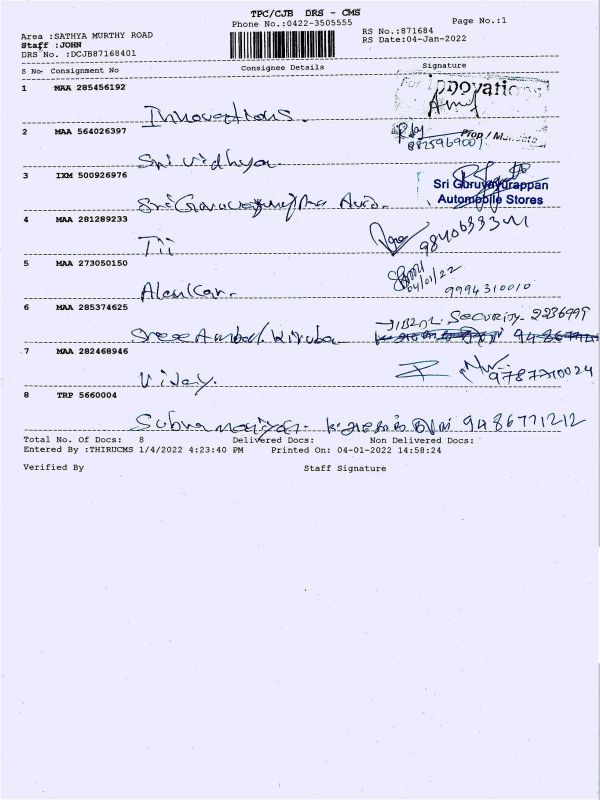 TPC/CJB DRS - CMS
Phone No.:0422-3505555
Page No.:1
Area :SATHYA MURTHY ROAD
RS No.:871684
Staff :JOHN
RS Date:04-Jan-2022
DRS No. :DCJB87168401
S No. Consignment No Consignee Details Signature
1 MAA 285456192
For innovations
Innovations.
2 MAA 564026397
Prop / Mandate
Sri Vidhya
3 IXM 500926976
Sri Guruvayurappan
Automobile Stores
4 MAA 281289233
Tii
5 MAA 273050150
04/01/22
9994310010
6 MAA 285374625
SECURITY- 2236999
7 MAA 282468946
Vijay.
9787710024
8 TRP 5660004
9486771212
Total No. Of Docs: 8 Delivered Docs: Non Delivered Docs:
Entered By :THIRUCMS 1/4/2022 4:23:40 PM Printed On: 04-01-2022 14:58:24
Verified By Staff Signature